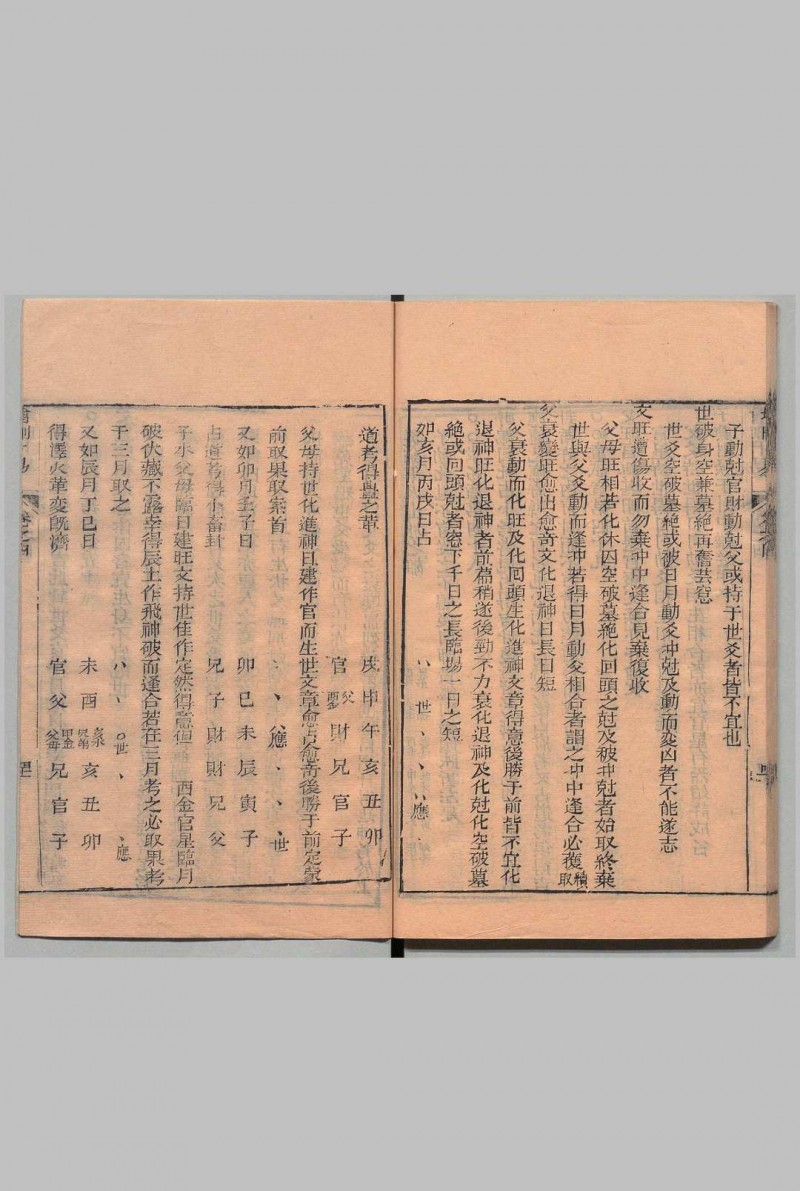 子動尅官財動尅父或持于世爻者皆不宜也
世破身空兼墓絶再奮芸窓
世爻空破墓絶或被日月動爻冲尅及動而変凶者不能遂志
文旺遭傷收而勿棄冲中逢合見棄復收
父母旺相若化休囚空破墓絶化回頭之尅及被冲尅者始取終棄
世與父爻動而逢冲若得日月動爻相合者謂之冲中逢合必復續取
父衰變旺愈出愈奇文化退神日長日短
父衰動而化旺及化回頭生化進神文章得意後勝于前皆不宜化
退神旺化退神者前篇稍遂後勁不力衰化退神及化尅化空破墓
絶或回頭尅者窓下千日之長臨場一日之短
如亥月丙戌日占
〃 世 、 、 〃應 、
道考得豊之革
戌 申 午 亥 丑 卯
官 父 財 兄 官 子
父母持世化進神日建作官而生世文章愈占愈奇後勝于前定蒙
前取果取案首
〃應 、 、 世
又如卯月壬子日
卯 巳 未 辰 寅 子
占道考得小畜卦
兄 子 財 財 兄 父
子水父母臨日建旺文持世佳作定然得意但 酉金官星臨月
破伏藏不露幸得辰土作飛神破而逢合若在三月考之必取果考
于三月取之
〃 、 ○世 、 〃 、應
又如辰月丁巳日
未 酉 亥 亥 丑 卯
得澤火革変既濟
官 父 兄 兄 官 子
卷之四